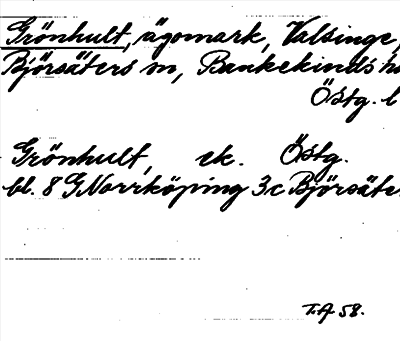 Grönhult, ägomark, Valsinge,
Björsäters sn, Bankekinds h
Östg. l
Grönhult, ek. Östg.
bl. 8 G Norrköping 3c Björsäte
T.A. 58.